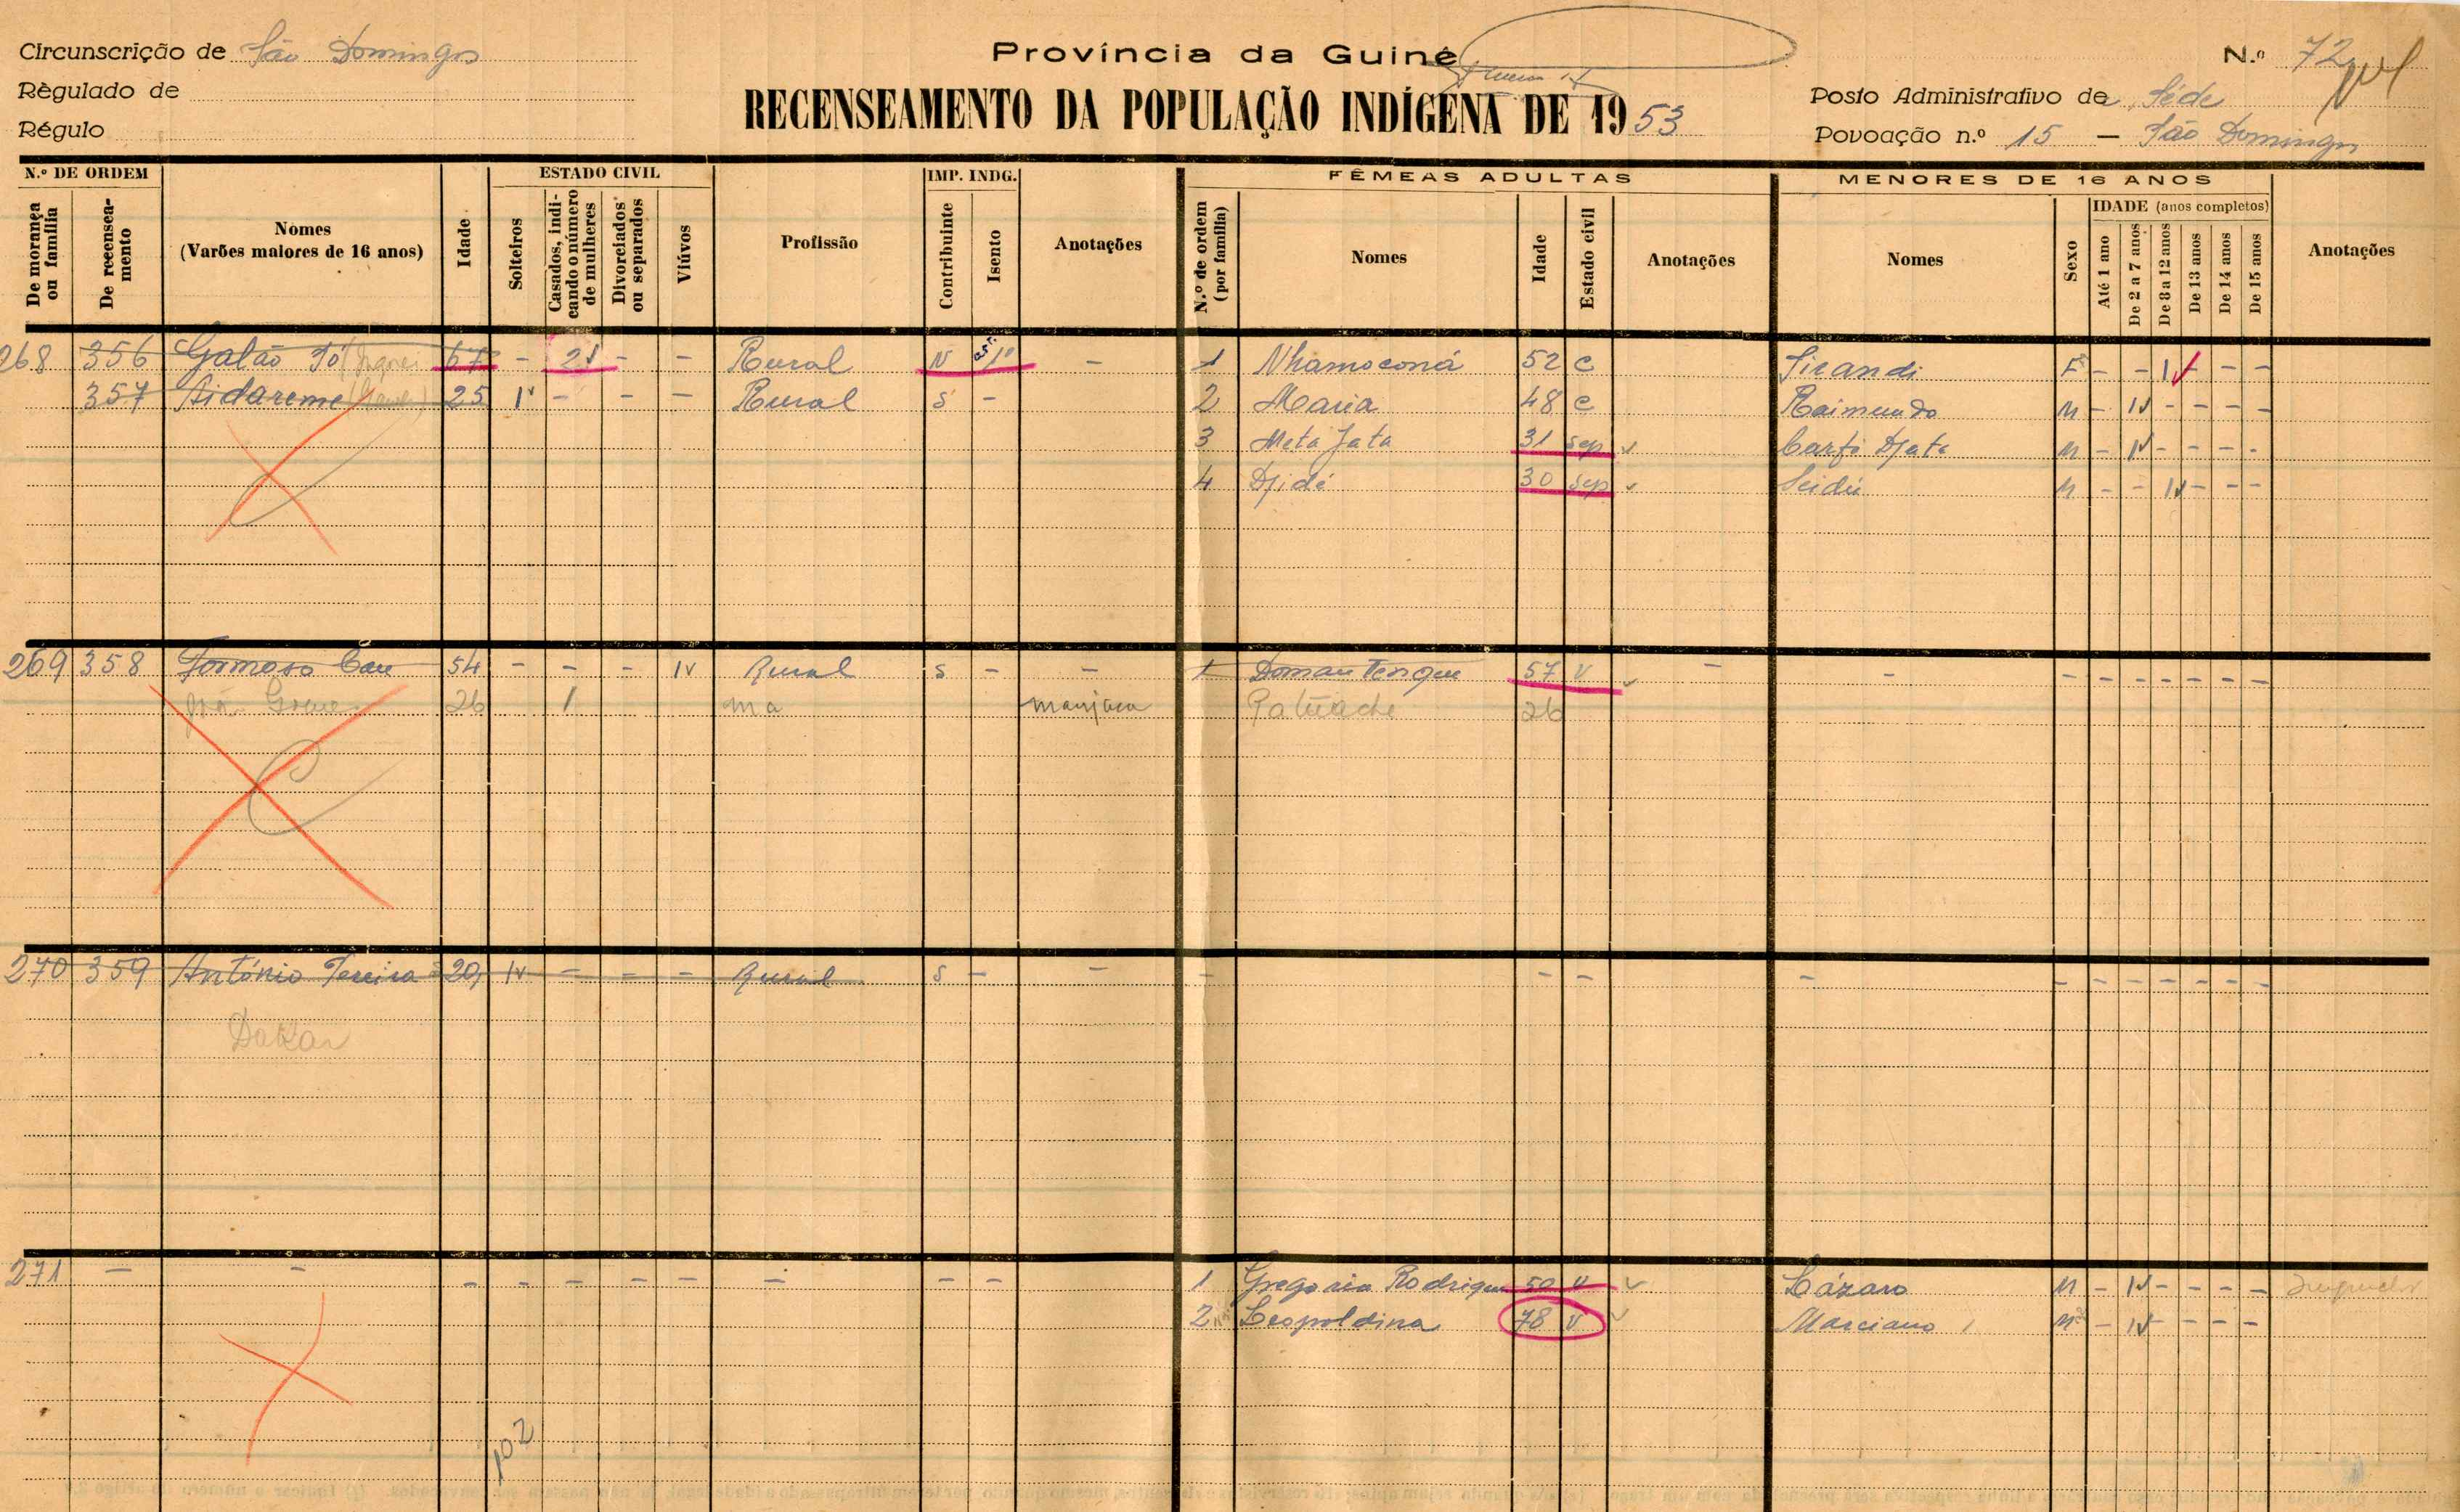 Circunscrição de São Domingos
Província da Guiné
N.º 72
Règulado de
Régulo
RECENSEAMENTO DA POPULAÇÃO INDÍGENA DE 1953
Posto Administrativo de Séde
Povoação n.º 15 - São Domingos
N.º DE ORDEM
De morança ou família
De reensea-mento
Nomes
(Varões maiores de 16 anos)
Idade
ESTADO CIVIL
Solteiros
Casados, indi-cando o número de mulheres
Divorciados ou separados
Viúvos
Profissão
IMP. INDG.
Contribuinte
Isento
Anotações
FÊMEAS ADULTAS
N.º de ordem (por família)
Nomes
Idade
Estado civil
Anotações
MENORES DE 16 ANOS
Nomes
Sexo
IDADE (anos completos)
Até 1 ano
De 2 a 7 anos
De 8 a 12 anos
De 13 anos
De 14 anos
De 15 anos
Anotações
268 356 Galão Jó 67 - 2 - - Rural N - 1 Nhamoconá 52 C Sirandi F - - 1 - - -
357 Aidareme 25 1 - - - Rural S - 2 Maria 48 C Raimundo M - 1 - - - -
3 Meta Jata 31 sep M - 1 - - - -
4 Djidé 30 sep Seidú M - - 1 - - -
269 358 Formoso 54 - - - 1 Rural S - - 1 57 V - - - - - - - - -
26 1 ma manjaca 26
270 359 António Pereira 20 1 - - - Rural S - - - - - - - - - - - - -
Dakar
271 - - - - - - - - - - 1 Gregoria Rodrigues 50 V Lázaro M - 1 - - - -
2 Leopoldina 78 V Marciano M - 1 - - - -
102